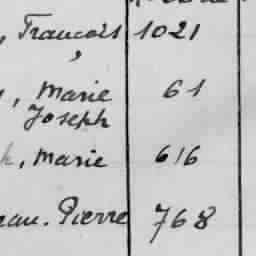 , François 1021
, Marie 61
Joseph
h, Marie 616
eau. Pierre 768